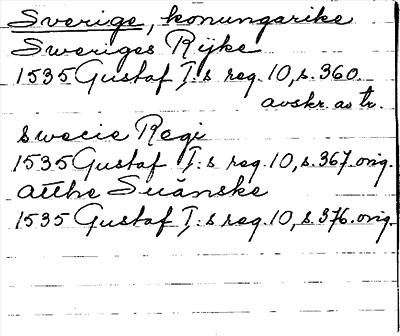 Sverige, konungarike
Sweriges Rijke
1535 Gustaf I:s reg. 10, s. 360.
avskr. as tr.
Swecie Regi
1535 Gustaf I:s reg. 10, s. 367. orig.
atthe Suänske
1535 Gustaf I:s reg. 10, s. 376. orig.